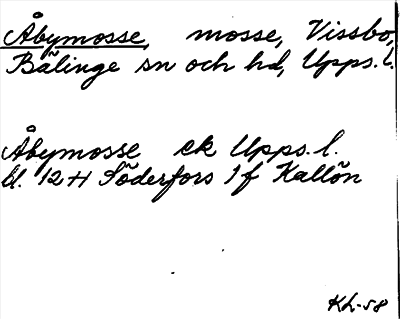 Åbymosse, mosse, Vissbo,
Bälinge sn och hd, Upps. l.
Åbymosse ek Upps. l.
bl. 12 H Söderfors 1 f Kallön
KL-58